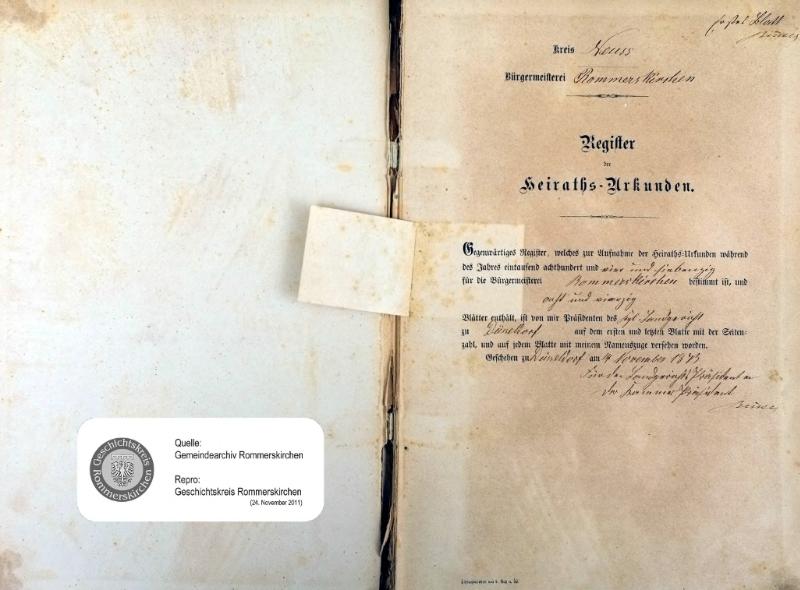 erstes Blatt
Kreis Neuss
Bürgermeisterei Rommerskirchen
Register
der
Heiraths-Urkunden.
Gegenwärtiges Register, welches zur Aufnahme der Heiraths-Urkunden während
des Jahres eintausend achthundert und vier und siebenzig
für die Bürgermeisterei Rommerskirchen bestimmt ist, und
acht und vierzig
Blätter enthält, ist von mir Präsidenten des kgl. Landgericht
zu Düsseldorf auf dem ersten und letzten Blatte mit der Seiten-
zahl, und auf jedem Blatte mit meinem Namenszuge versehen worden.
Geschehen zu Düsseldorf am 4 November 1873
Für den Landgerichts Präsidenten
Der Kammer Präsident
Geschichtskreis
Rommerskirchen
Quelle:
Gemeindearchiv Rommerskirchen
Repro:
Geschichtskreis Rommerskirchen
(24. November 2011)